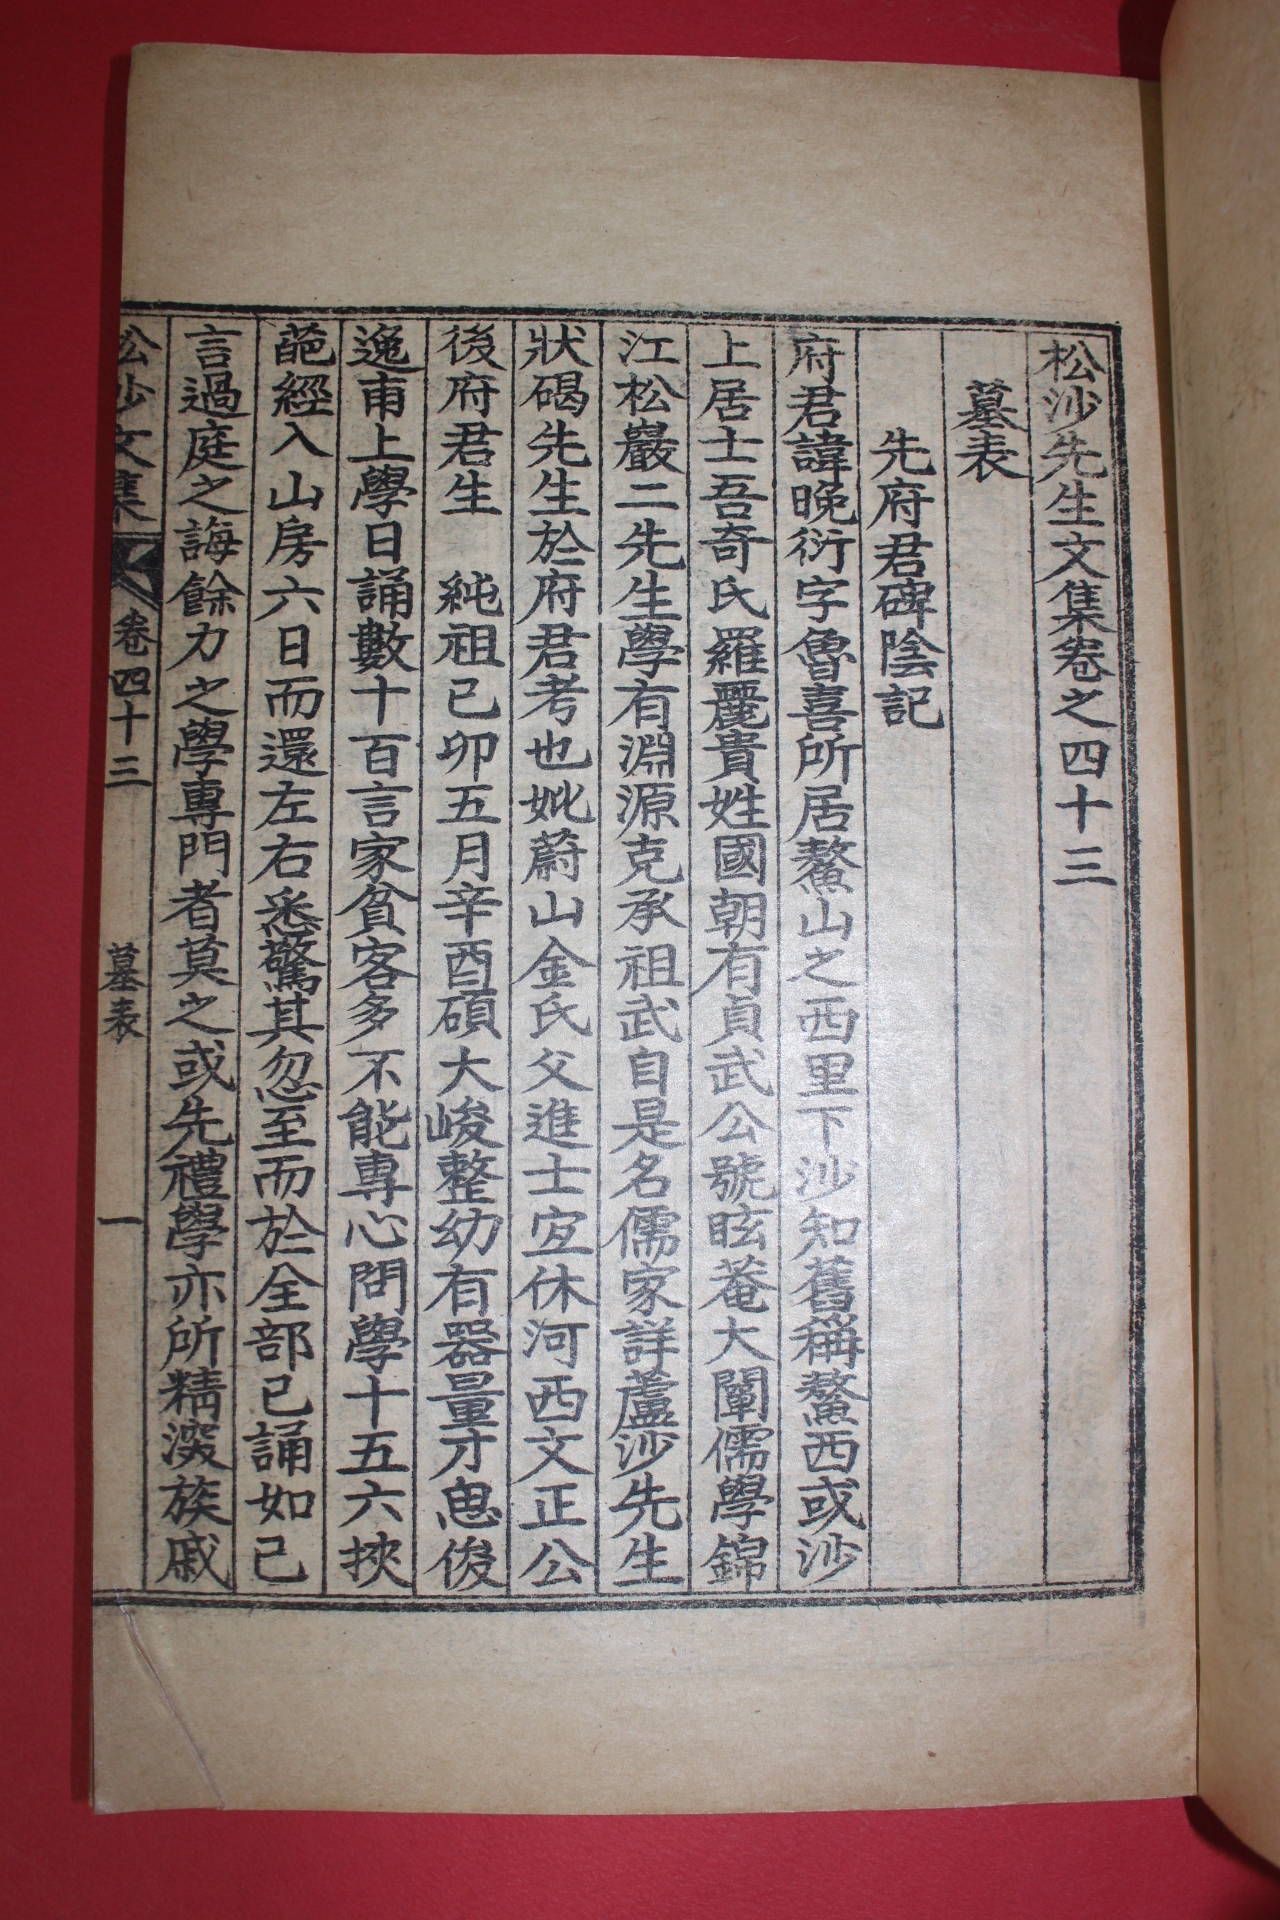 松沙先生文集卷之四十三
墓表
先府君碑陰記
府君諱晚衍字魯喜所居鰲山之西里下沙知舊稱鰲西或沙
上居士吾奇氏羅麗貴姓國朝有貞武公號眩菴大闡儒學錦
江松巖二先生學有淵源克承祖武自是名儒家詳蘆沙先生
狀碣先生於府君考也妣蔚山金氏父進士宜休河西文正公
後府君生 純祖己卯五月辛酉碩大峻整幼有器量才思俊
逸甫上學日誦數十百言家貧客多不能專心問學十五六挾
葩經入山房六日而還左右悉驚其忽至而於全部已誦如己
言過庭之誨餘力之學專門者莫之或先禮學亦所精深族戚
松沙文集 卷四十三 墓表 一